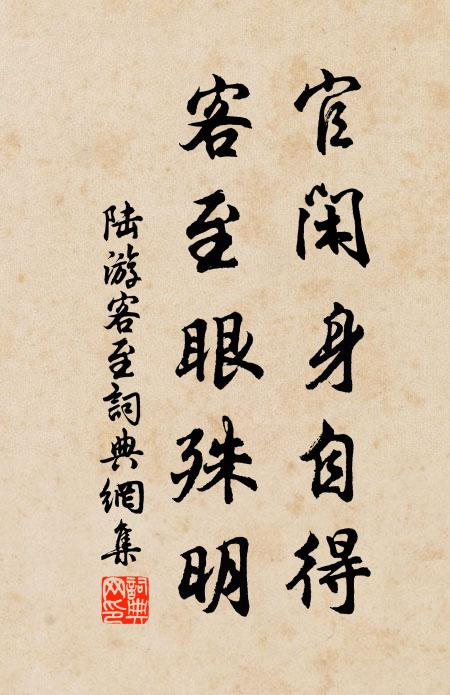 官闲身自得
客至眼殊明
陆游客至詞典網集
詞典网印